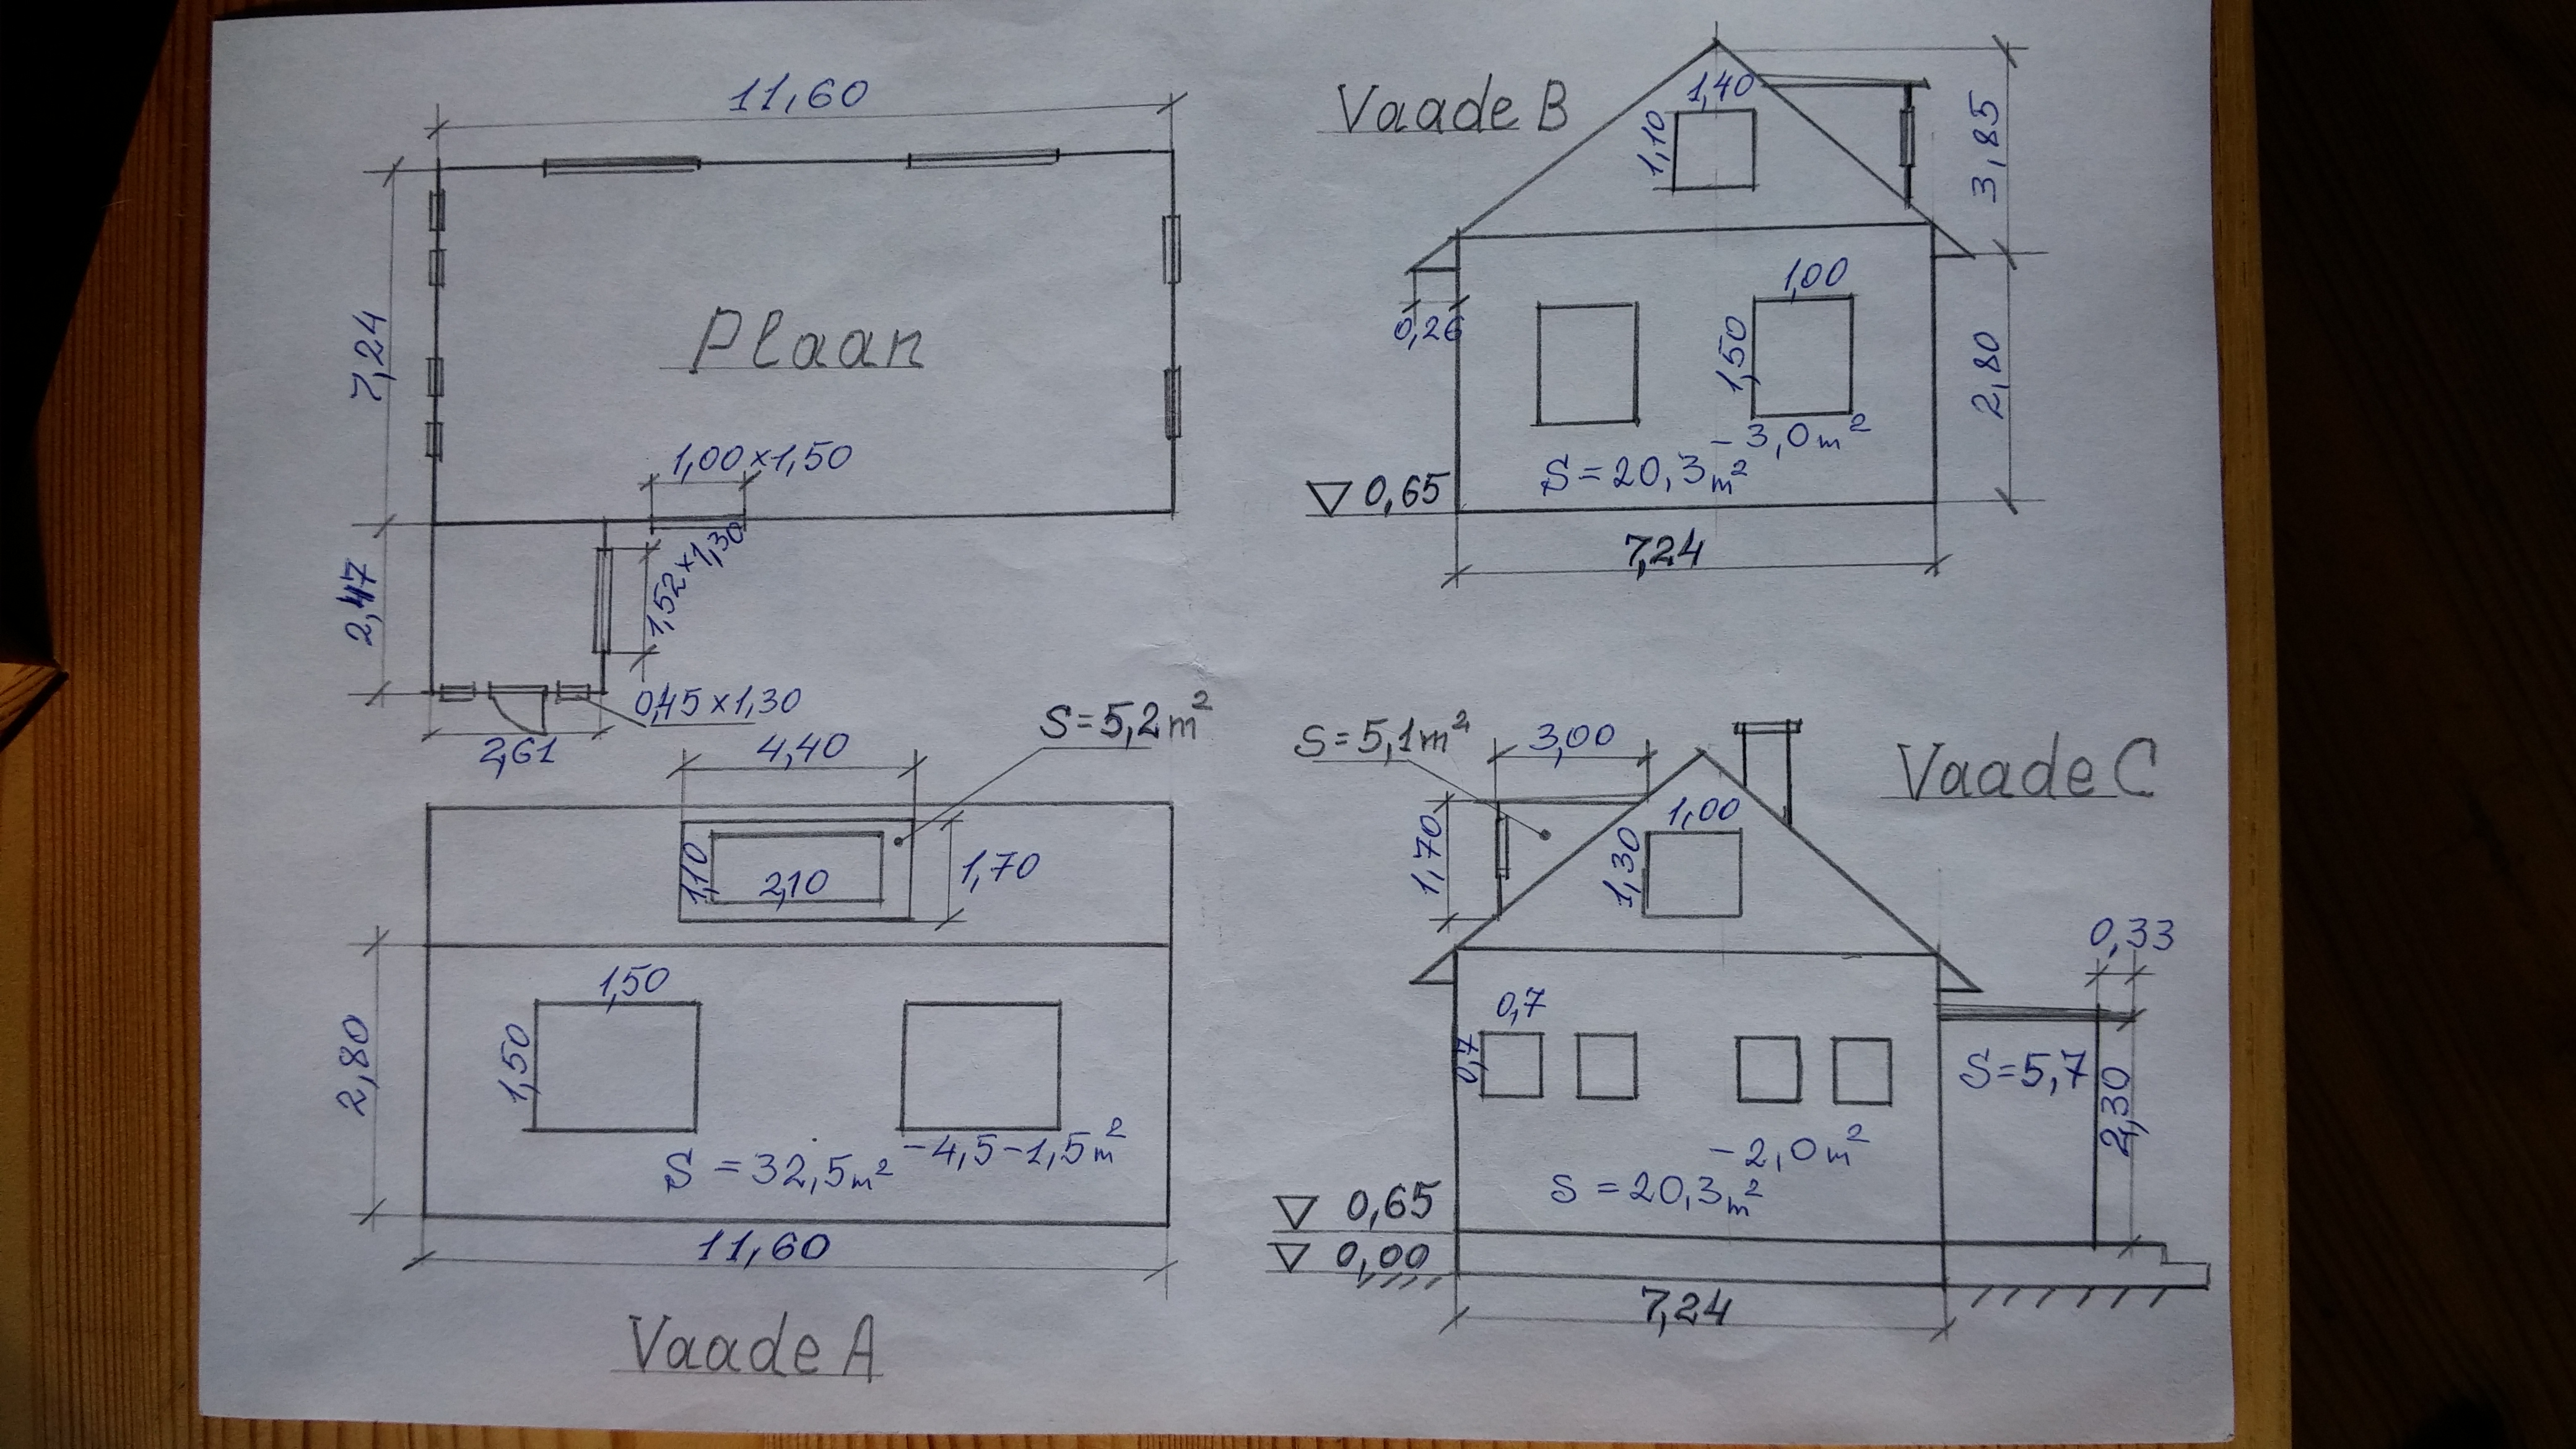 11,60
7,24
Plaan
1,00×1,50
1,52×1,30
2,47
0,45×1,30
2,61
Vaade B
1,40
1,10
3,85
1,00
0,26
1,50
2,80
-3,0m²
S=20,3m²
▽ 0,65
7,24
S=5,2m²
4,40
1,10
2,10
1,70
1,50
1,50
2,80
-4,5-1,5m²
S=32,5m²
11,60
Vaade A
S=5,1m²
3,00
Vaade C
1,00
1,70
1,30
0,33
0,7
0,7
S=5,7
2,30
-2,0m²
S=20,3m²
▽ 0,65
▽ 0,00
7,24